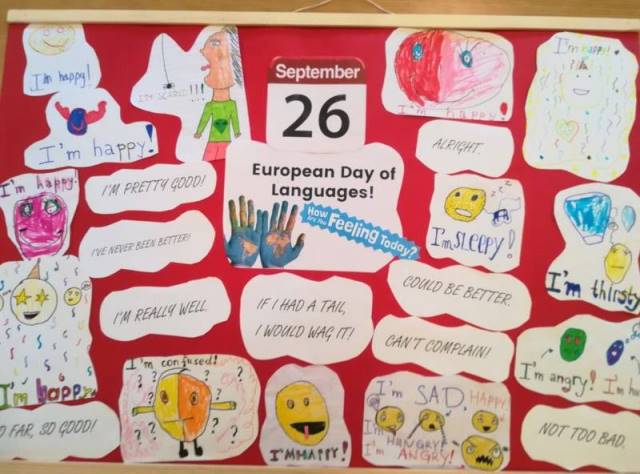 I'm happy!
I'M SCARED!!!
September
26
I'm happy!
I'm happy!
I'm happy!
ALRIGHT.
European Day of
Languages!
How
Are You
Feeling Today?
I'm happy!
I'M PRETTY GOOD!
I'VE NEVER BEEN BETTER!
zzz
I'm SLEEPY!
I'm thirsty
I'M REALLY WELL.
IF I HAD A TAIL,
I WOULD WAG IT!
COULD BE BETTER.
CAN'T COMPLAIN!
I'm happy
I'm angry!
I'm
O FAR, SO GOOD!
I'm confused!
? ? ? ? ? ? ?
I'M HAPPY!
I'm SAD, HAPPY
I'm HUNGRY
I'm ANGRY!
NOT TOO BAD.